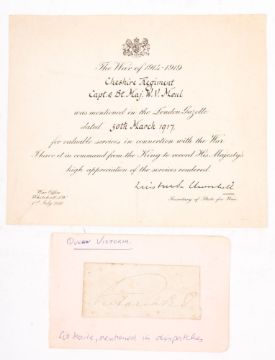 The War of 1914-1919
Cheshire Regiment
Capt. & Bt. Maj. W. V.
was mentioned in the London Gazette
dated 30th March 1917.
for valuable services in connection with the War.
I have it in command from the King to record His Majesty's
high appreciation of the services rendered.
War Office
Whitehall, S.W.
1st July 1919
Winston S. Churchill
Secretary of State for War.
QUEEN VICTORIA.
Victoria R
mentioned in dispatches